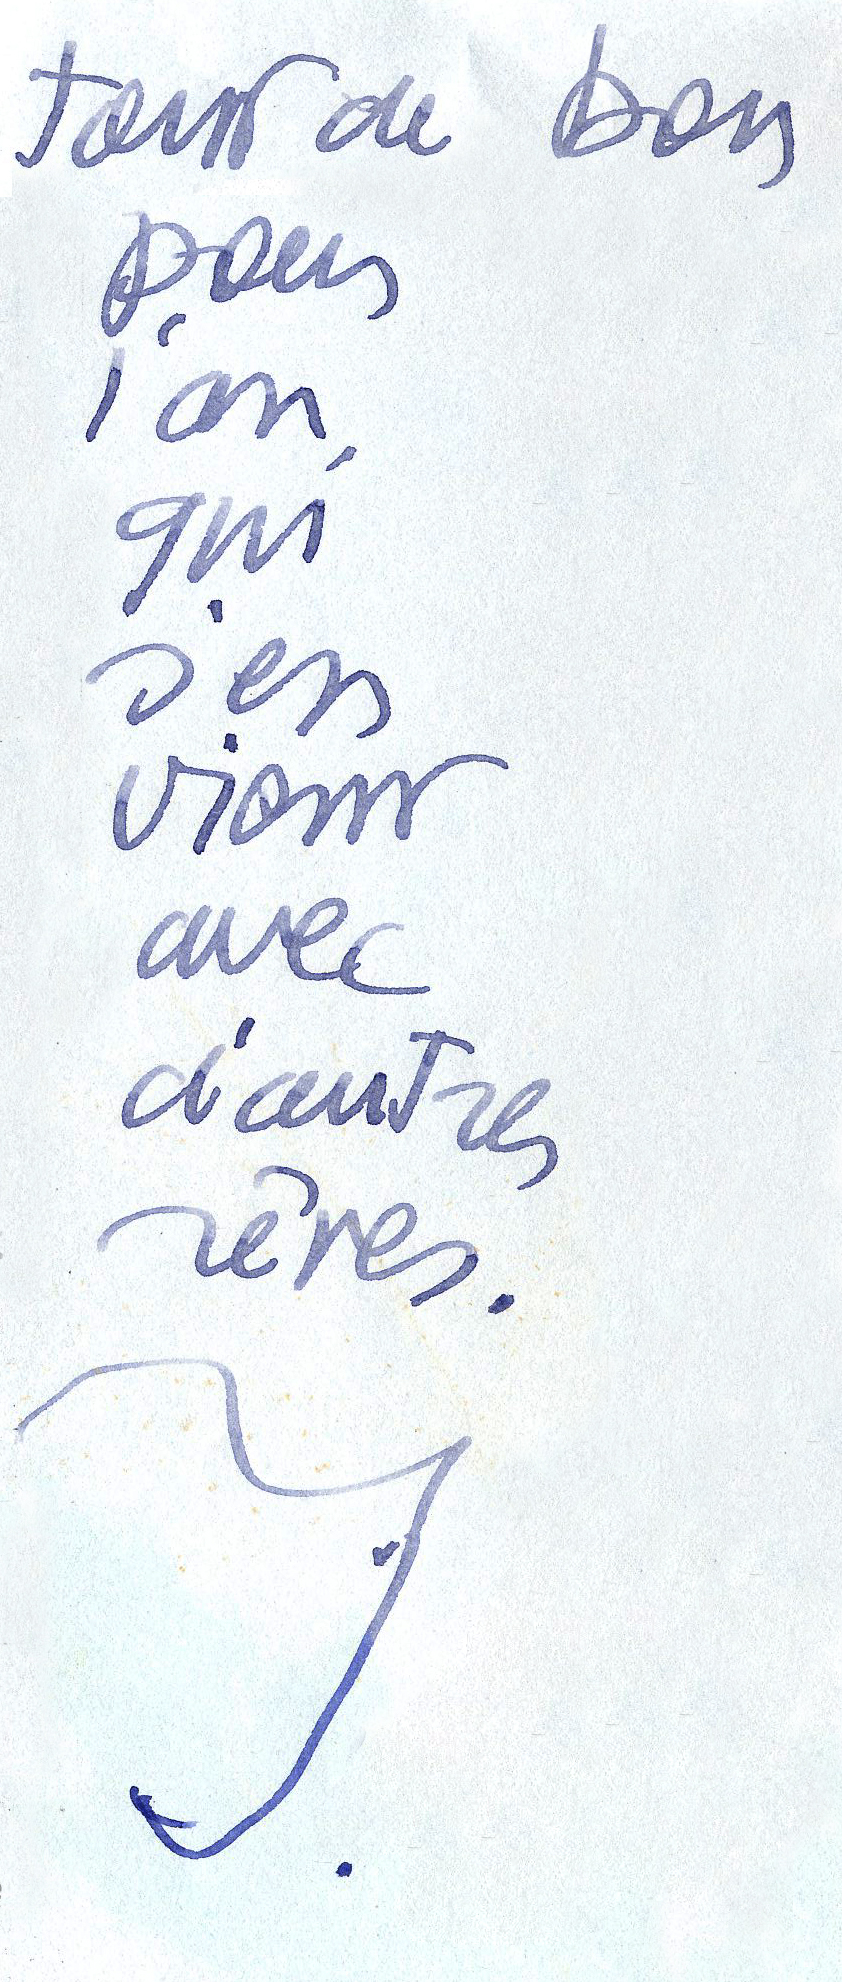 tout de bon
pour
l'an,
qui
s'en
vient
avec
d'autres
rêves.